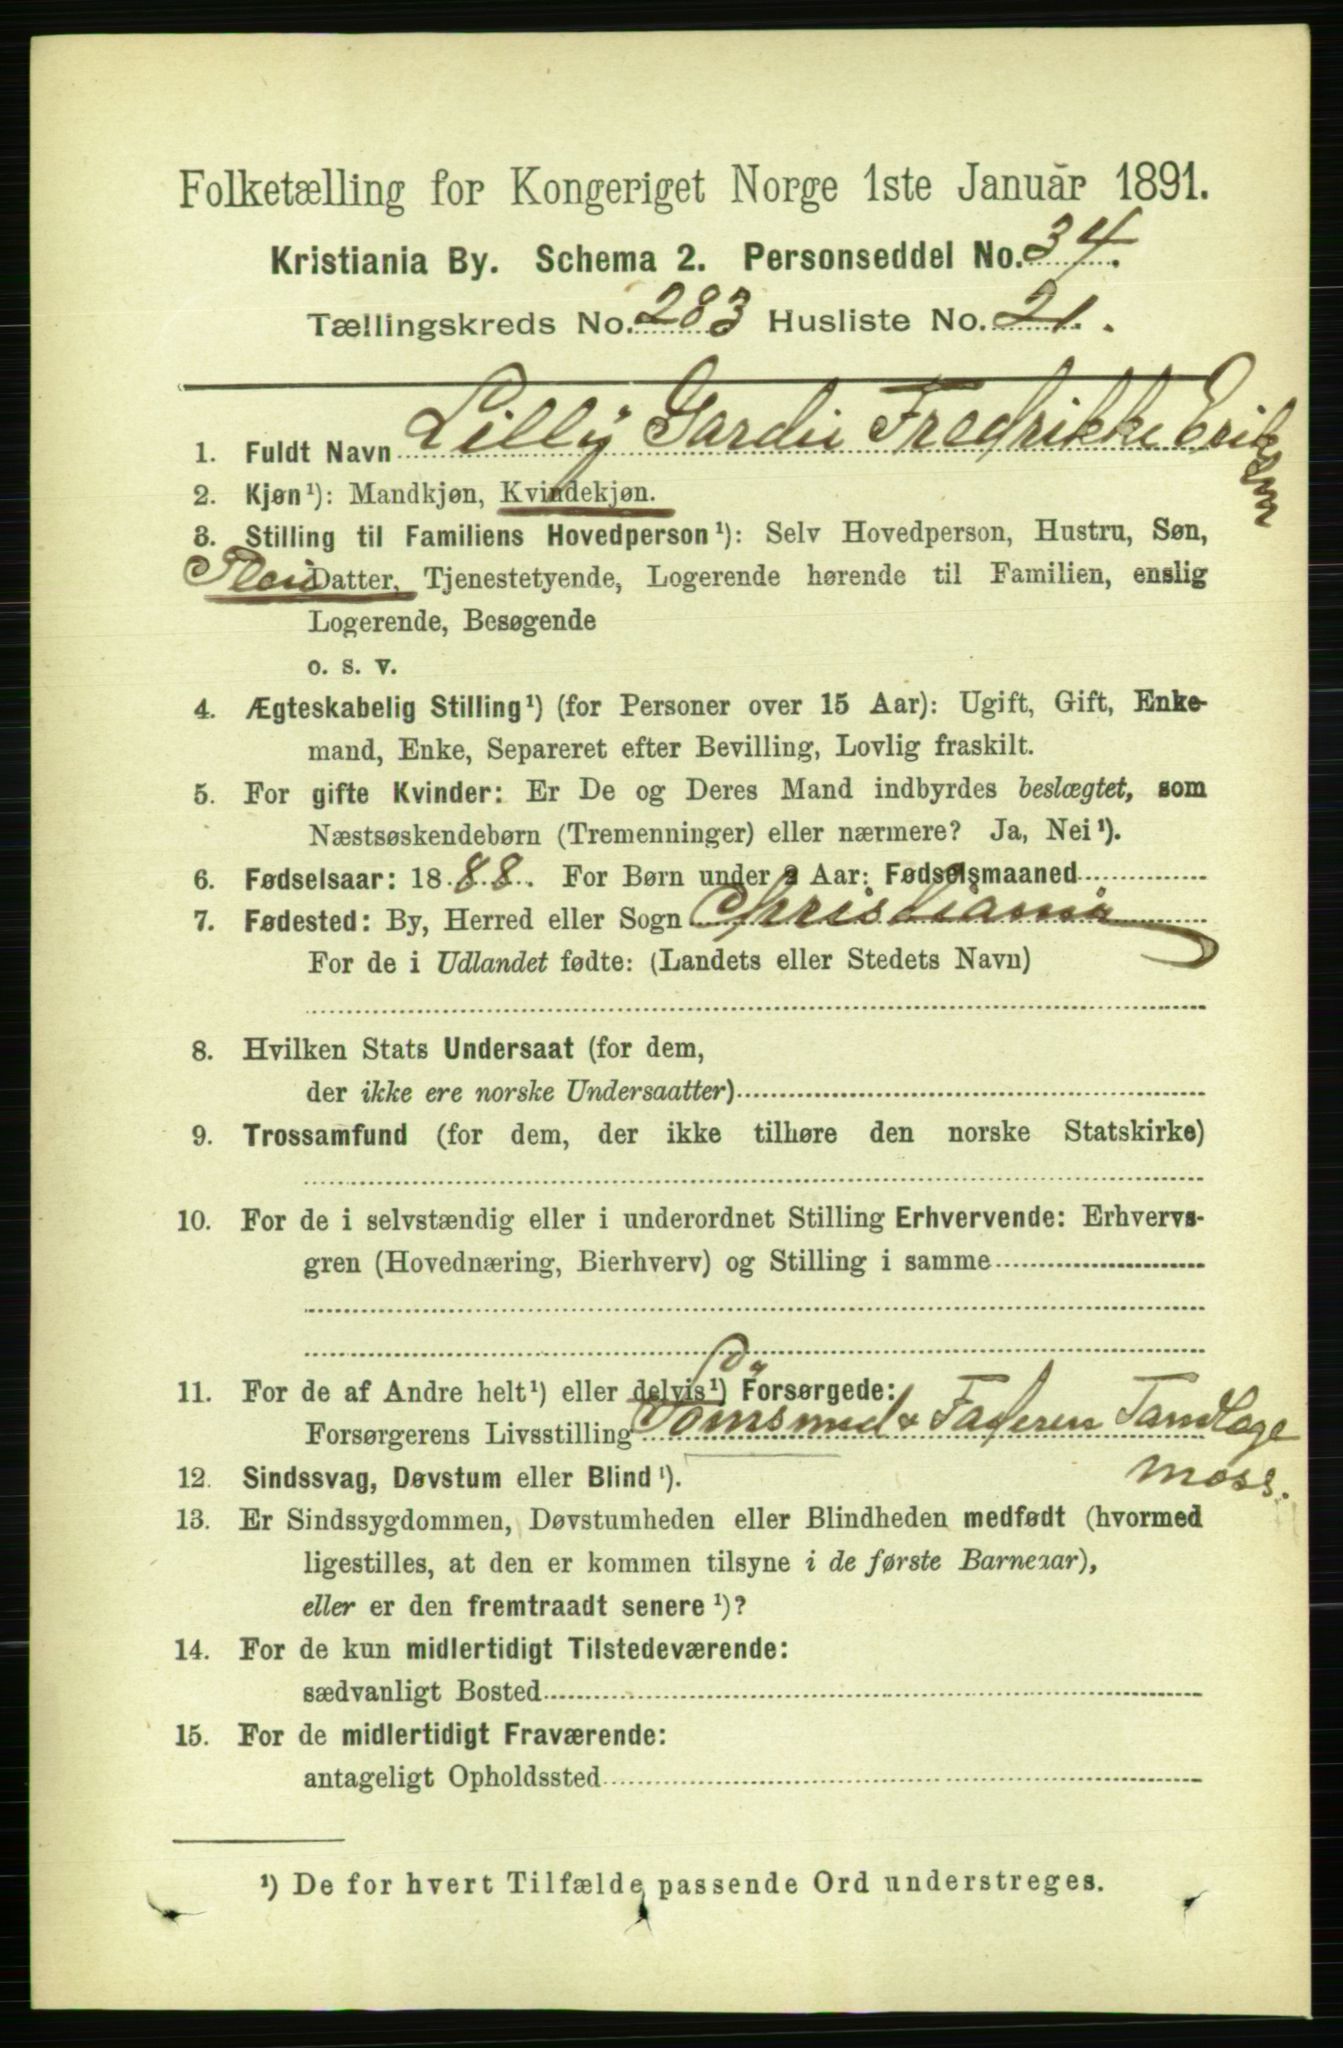 Folketælling for Kongeriget Norge 1ste Januar 1891.
Kristiania By. Schema 2. Personseddel No. 34.
Tællingskreds No. 283 Husliste No. 21.
1. Fuldt Navn Lilly Fredrikke Eriksen
2. Kjøn¹): Mandkjøn, Kvindekjøn.
3. Stilling til Familiens Hovedperson¹): Selv Hovedperson, Hustru, Søn,
Pleie Datter, Tjenestetyende, Logerende hørende til Familien, enslig
Logerende, Besøgende
o. s. v.
4. Ægteskabelig Stilling¹) (for Personer over 15 Aar): Ugift, Gift, Enke-
mand, Enke, Separeret efter Bevilling, Lovlig fraskilt.
5. For gifte Kvinder: Er De og Deres Mand indbyrdes beslægtet, som
Næstsøskendebørn (Tremenninger) eller nærmere? Ja, Nei¹).
6. Fødselsaar: 1888. For Børn under 2 Aar: Fødselsmaaned
7. Fødested: By, Herred eller Sogn Christiania
For de i Udlandet fødte: (Landets eller Stedets Navn)
8. Hvilken Stats Undersaat (for dem,
der ikke ere norske Undersaatter)
9. Trossamfund (for dem, der ikke tilhøre den norske Statskirke)
10. For de i selvstændig eller i underordnet Stilling Erhvervende: Erhvervs-
gren (Hovednæring, Bierhverv) og Stilling i samme
11. For de af Andre helt¹) eller delvis¹) Forsørgede:
Forsørgerens Livsstilling Faderen Tandlæge
Moss.
12. Sindssvag, Døvstum eller Blind¹).
13. Er Sindssygdommen, Døvstumheden eller Blindheden medfødt (hvormed
ligestilles, at den er kommen tilsyne i de første Barneaar),
eller er den fremtraadt senere¹)?
14. For de kun midlertidigt Tilstedeværende:
sædvanligt Bosted
15. For de midlertidigt Fraværende:
antageligt Opholdssted
¹) De for hvert Tilfælde passende Ord understreges.